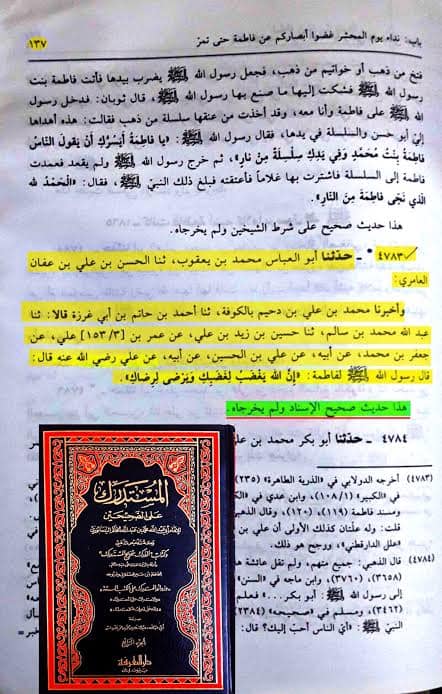 باب: نداء يوم المحشر غضوا أبصاركم عن فاطمة حتى تمرّ
١٣٧
فتخ من ذهب أو خواتيم من ذهب، فجعل رسول الله ﷺ يضرب بيدها فأتت فاطمة بنت
رسول الله ﷺ فشكت إليها ما صنع بها رسول الله ﷺ، قال ثوبان: فدخل رسول
الله ﷺ على فاطمة وأنا معه، وقد أخذت من عنقها سلسلة من ذهب فقالت: هذه أهداها
إليّ أبو حسن والسلسلة في يدها، فقال رسول الله ﷺ: «يا فاطمة أيسرك أن يقول الناس
فاطمة بنت محمد وفي يدك سلسلة من نار»، ثم خرج رسول الله ﷺ ولم يقعد فعمدت
فاطمة إلى السلسلة فاشترت بها غلاماً فأعتقته فبلغ ذلك النبي ﷺ، فقال: «الحمد لله
الذي نجى فاطمة من النار».
هذا حديث صحيح على شرط الشيخين ولم يخرجاه.
٤٧٨٣* ـ حدثنا أبو العباس محمد بن يعقوب، ثنا الحسن بن علي بن عفان
العامري:
وأخبرنا محمد بن علي بن دحيم بالكوفة، ثنا أحمد بن حاتم بن أبي غرزة قالا: ثنا
عبد الله محمد بن سالم، ثنا حسين بن زيد بن علي، عن عمر بن [١٥٣/٣] علي، عن
جعفر بن محمد، عن أبيه، عن علي بن الحسين، عن أبيه، عن علي رضي الله عنه قال:
قال رسول الله ﷺ لفاطمة: «إن الله يغضب لغضبك ويرضى لرضاك».
هذا حديث صحيح الإسناد ولم يخرجاه.
٤٧٨٤ ـ حدثنا أبو بكر محمد بن
(٤٧٨٣) أخرجه الدولابي في «الذرية الطاهرة» (٢٣٥)
في «الكبير» (١٠٨/١)، وابن عدي في «
ومسند فاطمة (١١٩)، (١٢٠)، وقال الذهبي
قلت: وله علتان كذلك الأولى أن علي بن
«علل الدارقطني»، ورجح
(٤٧٨٤) قال الذهبي: جميع متهم، ولم تقل عائشة
(٣٦٥٨)، (٣٧٦٠)، وابن ماجه في «السنن»
إلى رسول الله ﷺ: «أبو بكر...» فعلم
(٣٤٦٢)، ومسلم في «صحيحه» (٢٣٨٤)
النبي ﷺ: «أي الناس أحب إليك؟ قال:
المستدرك
على الصحيحين